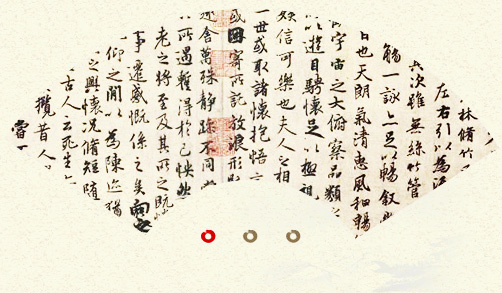 林脩竹
左右引以為
次雖無絲竹管
觴一詠上足以暢叙
日也天朗氣清惠風和暢
宇宙之大俯察品類
以遊目騁懷足以極視
娛信可樂也夫人之相
一世或取諸懷抱悟
或因寄所託放浪形
舍萬殊靜躁不同
所遇暫得於己快然
老之將至及其所之既
事遷感慨係之矣向之
仰之閒以為陳迹猶
之興懷況脩短隨
古人云死生
攬昔人
嘗一